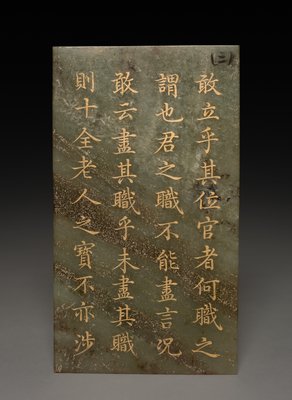 (二)
敢立乎其位官者何職之
謂也君之職不能盡言況
敢云盡其職乎未盡其職
則十全老人之寶不亦涉